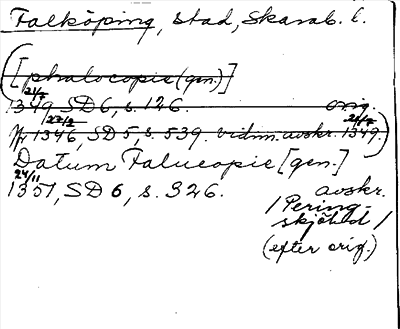 Falköping, stad, Skarab. l.
([phalocopie (gen.)]
21/7
1349 SD 6, s. 126. orig.
27/2 21/7
Nr 1346, SD 5, s. 539. vidim. avskr. 1349.)
Datum Falucopie [gen.]
24/11
1351, SD 6, s. 326. avskr.
/Pering-
skjöld/
(efter orig.)